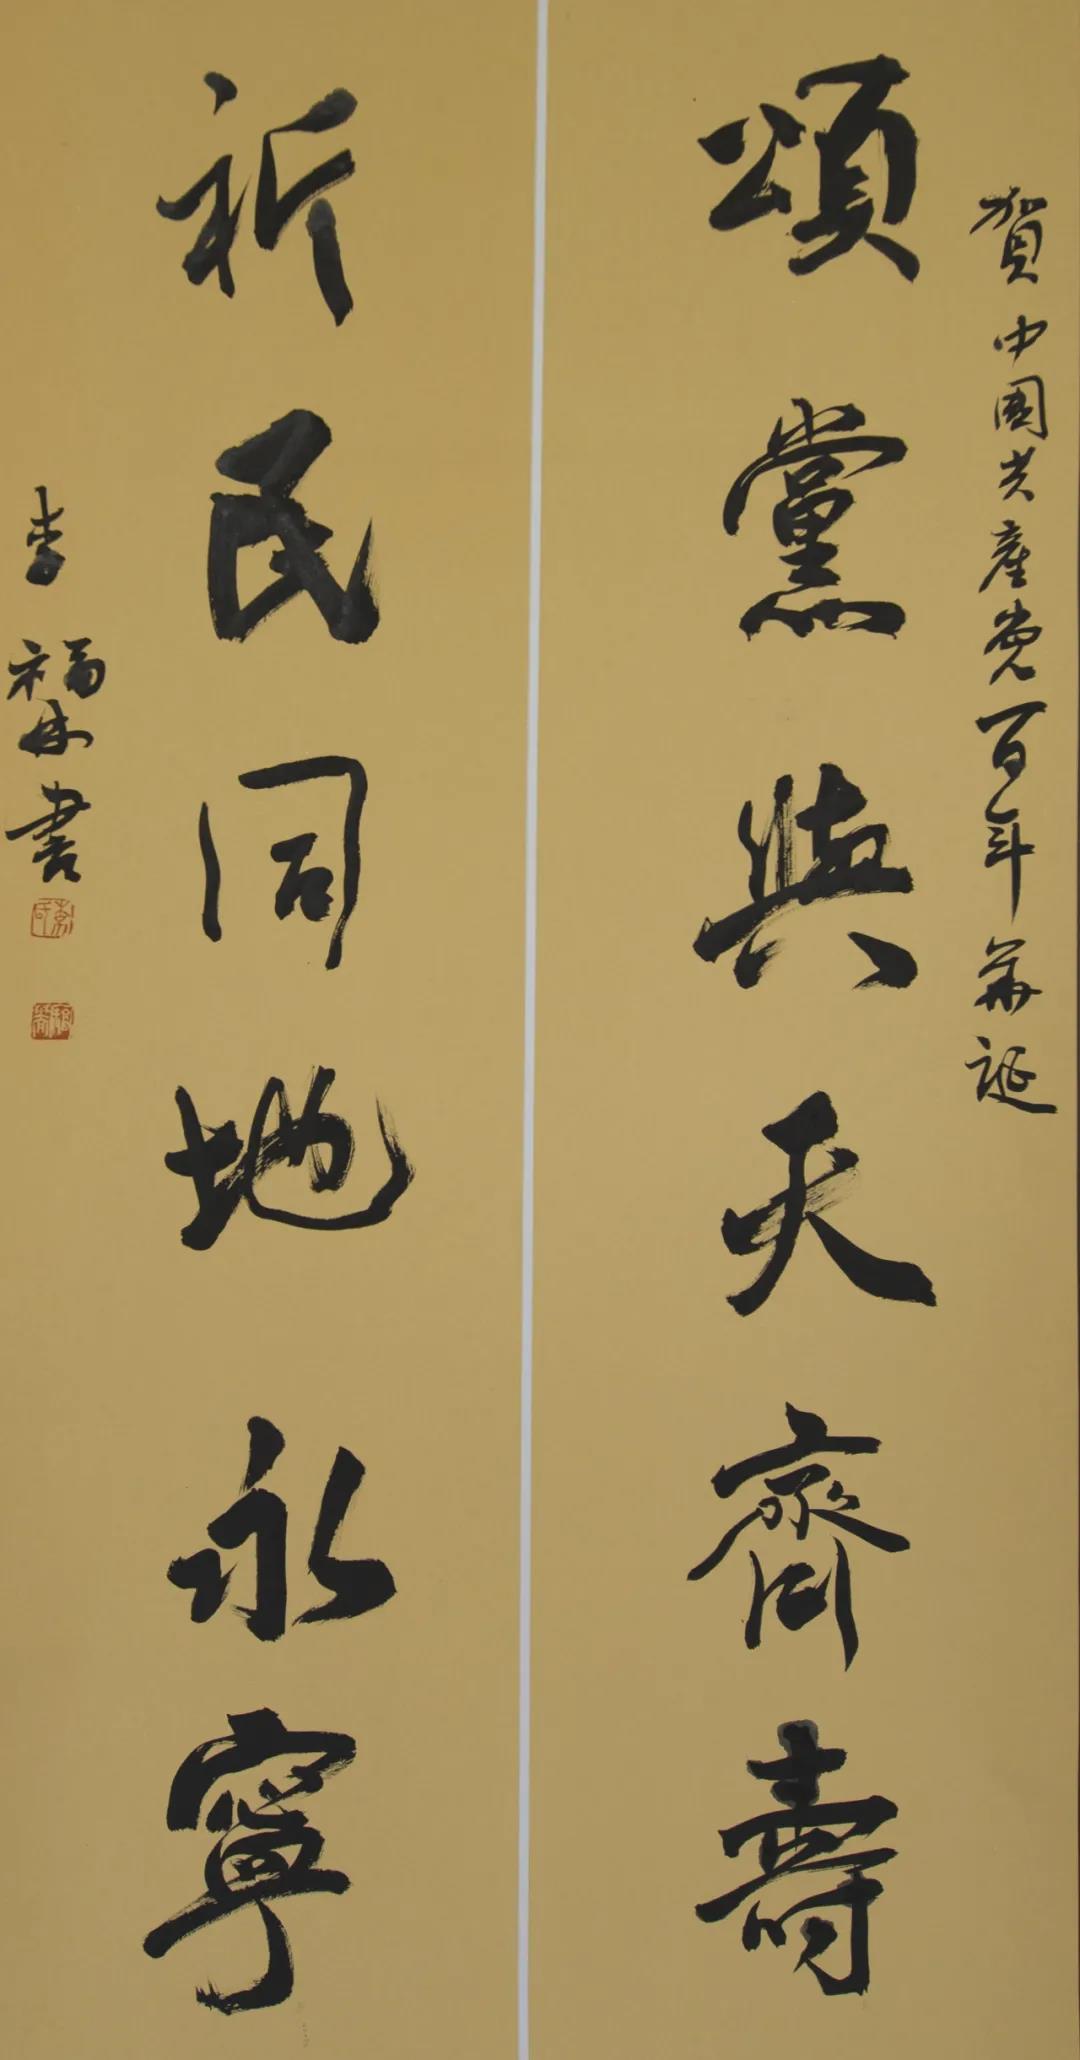 賀中國共產党百年華誕
頌黨與天齊壽
祈民同地永寧
李福林書